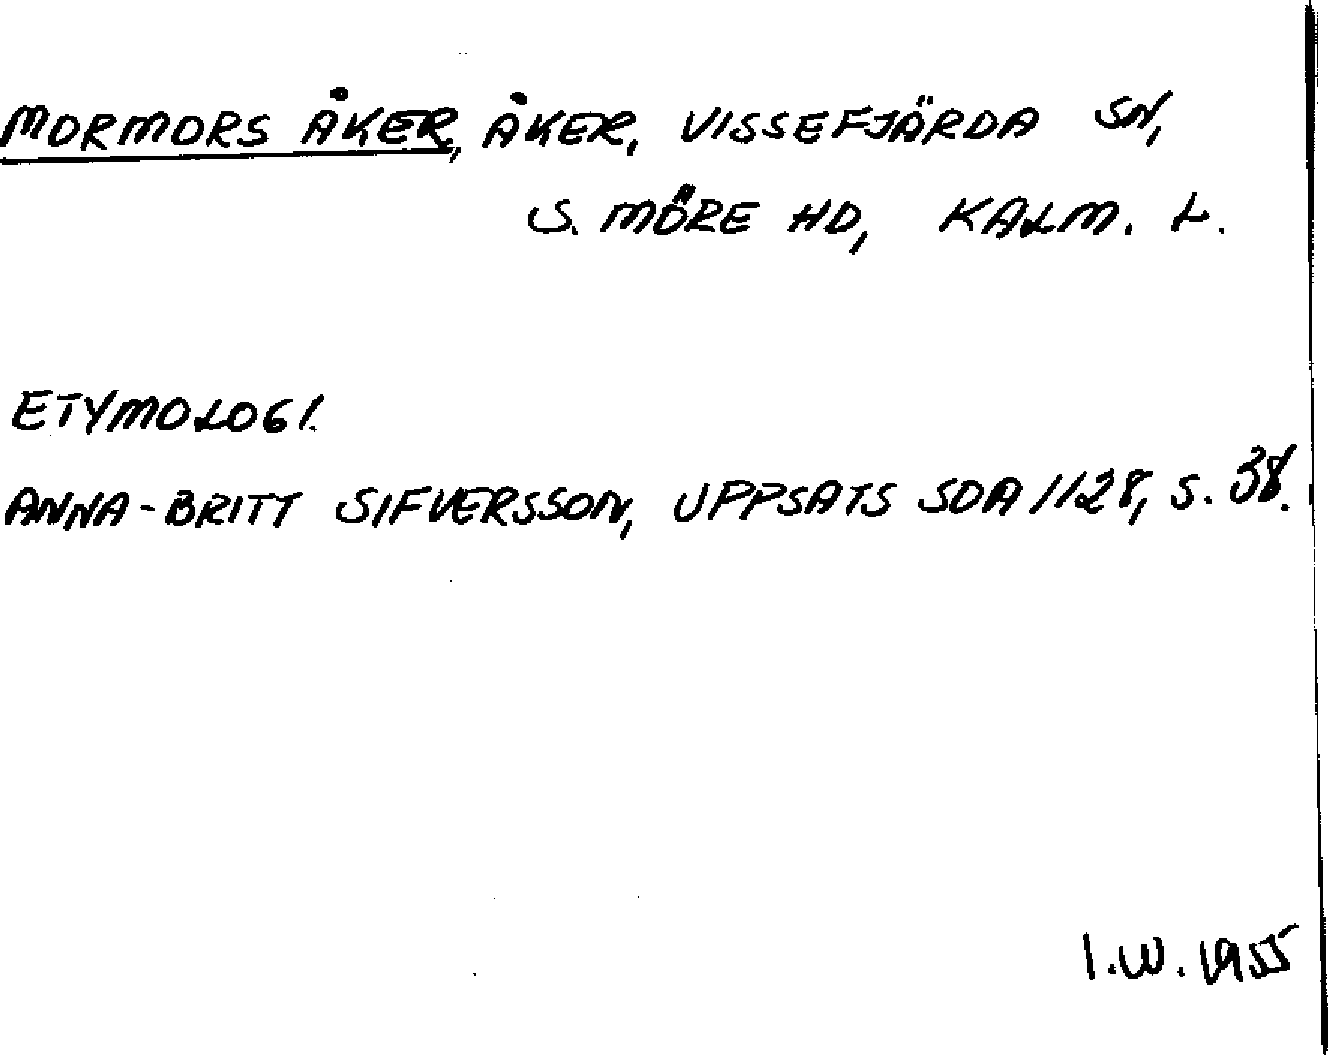 MORMORS ÅKER, ÅKER, VISSEFJÄRDA SN,
S. MÖRE HD, KALM. L.
ETYMOLOGI.
ANNA-BRITT SIFVERSSON, UPPSATS SDA 1128, S. 38.
I.W. 1955